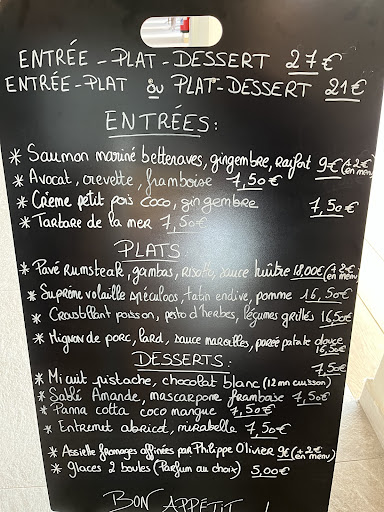 ENTRÉE - PLAT - DESSERT 27€
ENTRÉE-PLAT ou PLAT-DESSERT 21€
ENTRÉES:
* Saumon mariné betteraves, gingembre, raifort 9€ (+2€ en menu)
* Avocat, crevette, framboise 7,50€
* Crème petit pois coco, gingembre 7,50€
* Tartare de la mer 7,50€
PLATS:
* Pavé rumsteak, gambas, risoti, sauce huître 18,00€ (+2€ en menu)
* Suprême volaille spéculoos, tatin endive, pomme 16,50€
* Croustillant poisson, pesto d'herbes, légumes grillés 16,50€
* Mignon de porc, lard, sauce maroilles, purée patate douce 16,50€
DESSERTS:
* Mi cuit pistache, chocolat blanc (12 mn cuisson) 7,50€
* Sablé Amande, mascarpone framboise 7,50€
* Panna cotta coco mangue 7,50€
* Entremet abricot, mirabelle 7,50€
* Assiette fromages affinées par Philippe Olivier 9€ (+2€ en menu)
* glaces 2 boules (Parfum au choix) 5,00€
BON APPÉTIT !